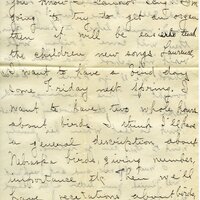 you know I cannot sing. I'm
going to try to get an organ
then it will be easier to teach
the children new songs.
I want to have a bird day
some Friday next spring. I
want to have two whole hours
about birds. I think I'll have
a general description about
birds, giving number,
importance etc. Then we'll
have recitations about birds